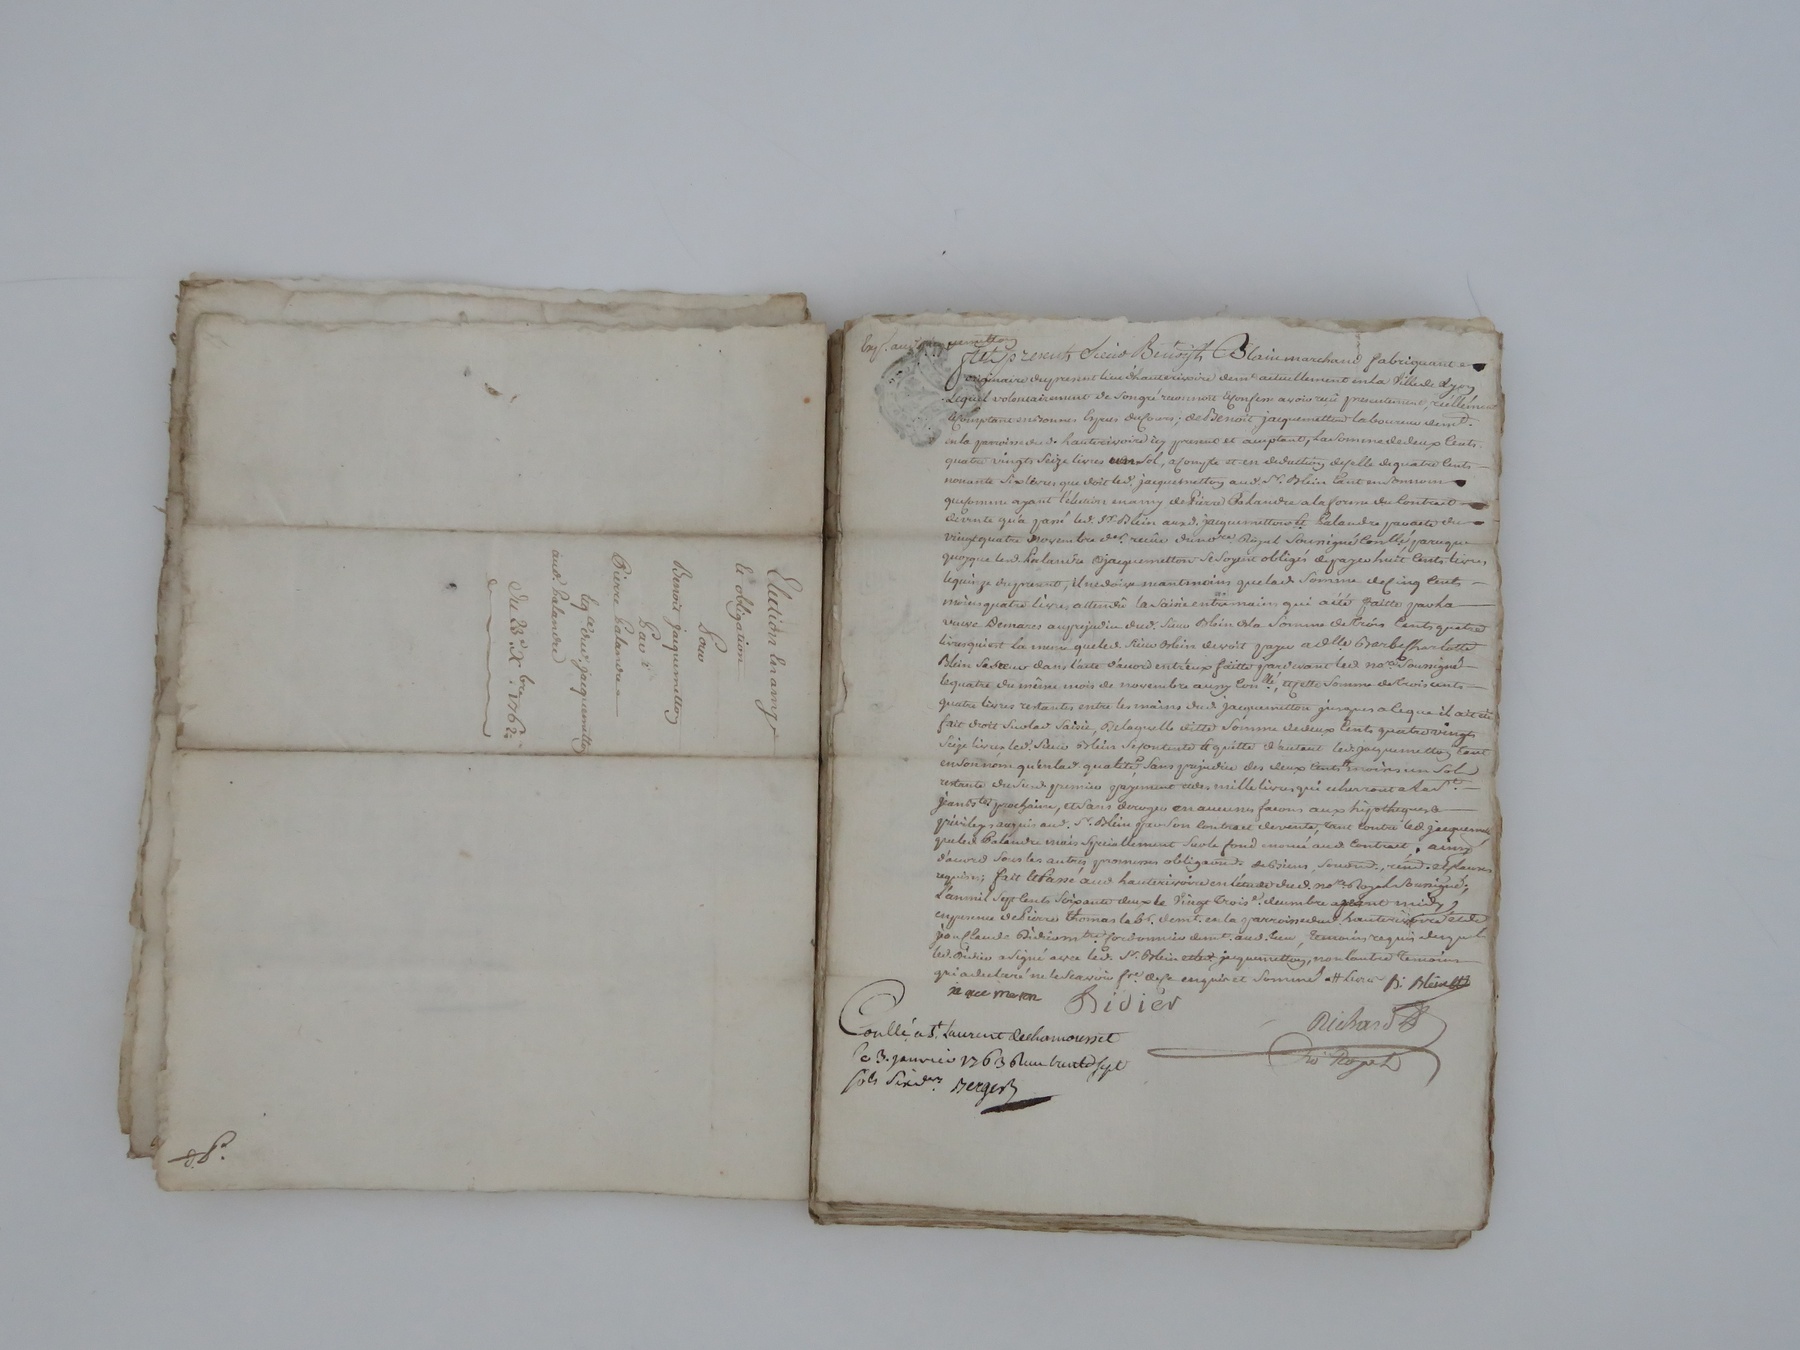 Election en amy
& obligation
Pour
Benoit jacquemetton
Par
Pierre Palandre
led. jacquemetton
aud. Palandre
Du 23e Xbre 1762
d. P.
Exp. aud. jacquemetton
fut present Sieur Benoist Blain marchand fabriquant
originaire du present lieu d'hauterivoire demt actuellement en la Ville de Lyon
Lequel volontairement de Son gré reconnoit & confesse avoir reçû presentement, réellement
& comptant en bonnes Especes du Cours, de Benoit jacquemetton laboureur demt.
en la parroisse dud. hauterivoire icy present et acceptant, La Somme de deux Cents
quatre vingts Seize livres un Sol, a Compte et en deduction de celle de quatre Cents
nonante Six livres que doit led. jacquemetton aud. Sr. Blein tant en Son nom
que comme ayant l'élection en amy de Pierre Palandre a la forme du Contract
de vente qu'a passé led. Sr. Blein auxd. jacquemetton & Palandre par acte du
vingt quatre Novembre der. reçû du nore Royal Soussigné Conllé parceque
quoyque led. Palandre & jacquemetton Se Soyent obligés de payer huit Cents livres
le quinze du present, il ne doive neantmoins que lad. Somme de Cinq Cents
moins quatre livres, attendû la Saisie entre mains qui a été faitte par la
veuve Demares au prejudice dud. Sieur Blein de la Somme de Trois Cents quatre
livres qui est la même que led. Sieur Blein devoit payer a dlle
Blein Sa Sœur dans l'acte d'acord entr'eux faitte pardevant led. nore Soussigné
le quatre du même mois de novembre aussy Conllé, & cette Somme de trois cents
quatre livres restantes entre les mains dud. jacquemetton jusques a ce que il ait été
fait droit Sur lad. Saisie, De laquelle ditte Somme de deux Cents quatre vingt
Seize livres led. Sieur Blein Se contente & quitte d'autant led. jacquemetton tant
en Son nom qu'en lad. qualité, Sans prejudice des deux Cents livres moins un Sol
restante du Susd. premier payement & des mille livres qui echerront a la St.
jean Bte prochaine, et Sans deroger en aucunes façons aux hipotheques &
privileges acquis aud. Sr. Blein par Son Contract de vente, tant contre led. jacquemetton
que led. Palandre mais Specialement Sur le fond enoncé aud. Contract, ainsy
d'acord Sous les autres promesses obligaons. de biens, Soumd., renond. & clauses
requises; fait & Passé aud. hauterivoire en l'étude dud. nore Royal Soussigné,
L'an mil Sept Cents Soixante deux le Vingt Trois décembre avant midy
en presence de Pierre Thomas demt. en la parroisse dud. hauterivoire & de
jean Claude Didier mtre cordonnier demt. aud. lieu, Temoins requis desquels
led. Didier a Signé avec led. Sr. Blein & led. jacquemetton, non l'autre temoin
qui a declaré ne le Scavoir fre de ce enquis et Sommé B: Blein
jacquemeton Didier
Richard
No Royal
Conllé a St. Laurent de chamousset
le 3. janvier 1763 trente sept
sols Six ders Berger